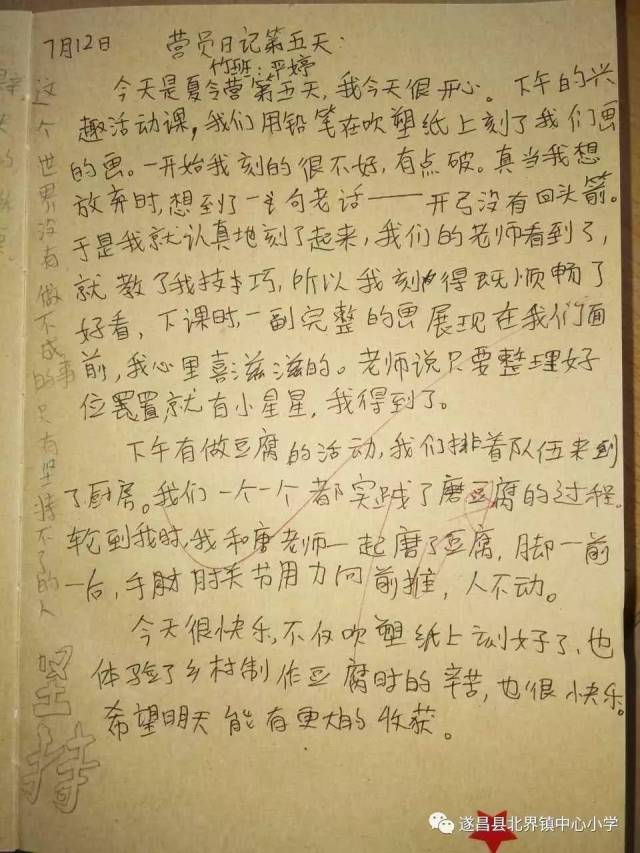 7月12日 营员日记第五天:
竹班:严婷
今天是夏令营第五天,我今天很开心。下午的兴
趣活动课,我们用铅笔在吹塑纸上刻了我们画
的画。一开始我刻的很不好,有点破。真当我想
放弃时,想到了一句老话——开弓没有回头箭。
于是我就认真地刻了起来,我们的老师看到了,
就教了我技巧,所以我刻得既顺畅了
好看,下课时,一副完整的画展现在我们面
前,我心里喜滋滋的。老师说只要整理好
位置就有小星星,我得到了。
下午有做豆腐的活动,我们排着队伍来到
了厨房。我们一个一个都实践了磨豆腐的过程。
轮到我时,我和唐老师一起磨了豆腐,脚一前
一后,手肘关节用力向前推,人不动。
今天很快乐,不仅吹塑纸上刻好了,也
体验了乡村制作豆腐时的辛苦,也很快乐。
希望明天能有更大的收获。
这个世界没有做不成的事只有坚持不了的人
坚持
遂昌县北界镇中心小学